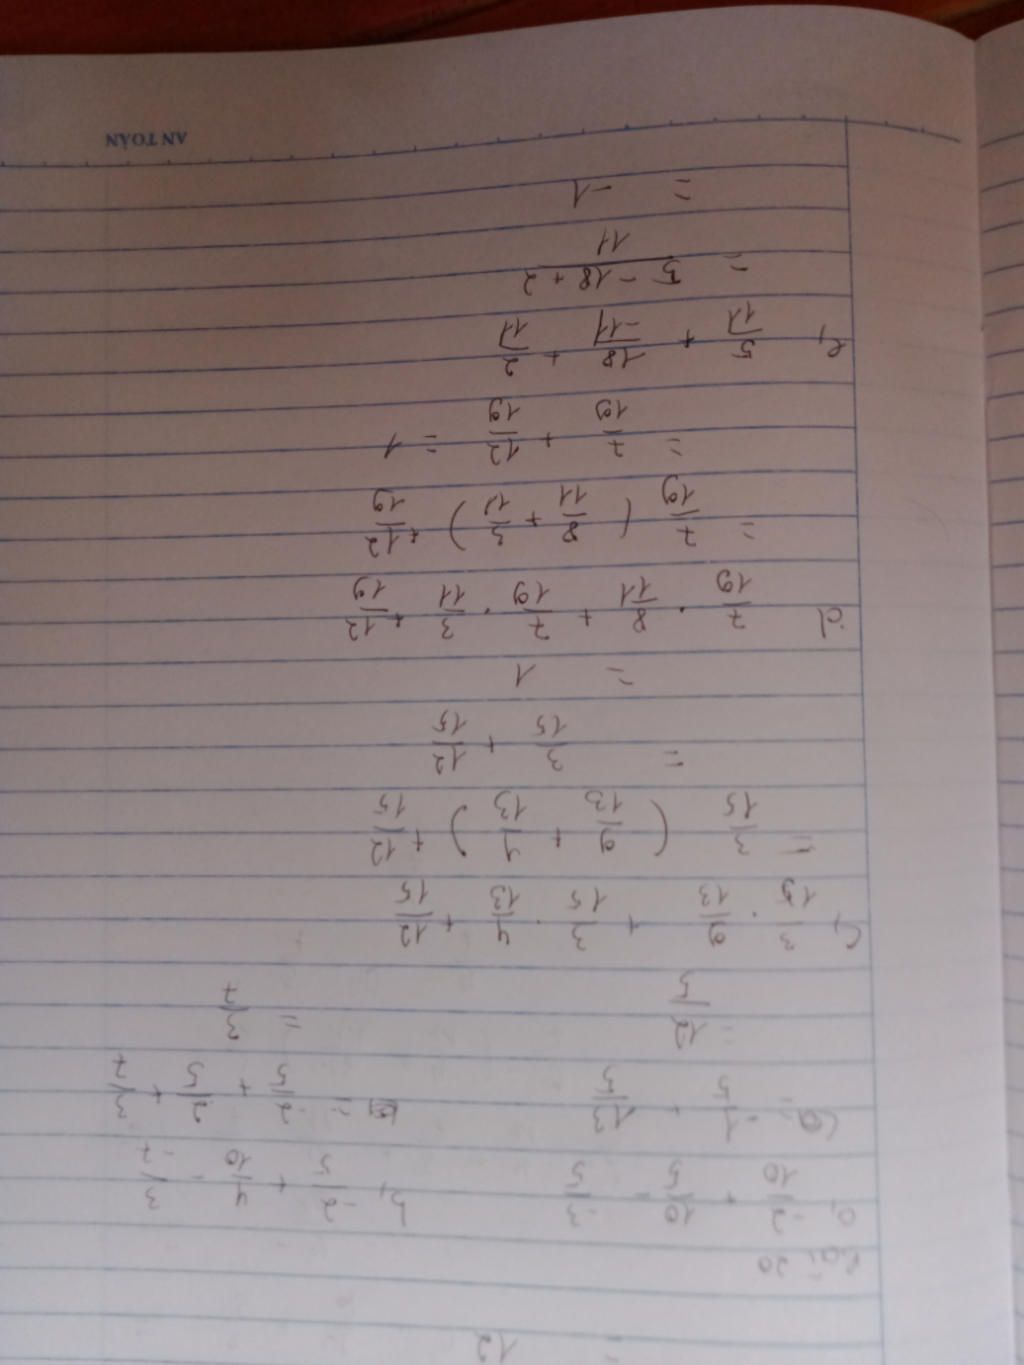 = 12
Bài 20
a, -2/10 + 10/5 - -3/5    b, -2/5 + 4/10 - 3/-7
a = -1/5 + 13/5    b = -2/5 + 2/5 + 3/7
= 12/5    = 3/7
c, 3/15 . 9/13 + 3/15 . 4/13 + 12/15
= 3/15 ( 9/13 + 4/13 ) + 12/15
= 3/15 + 12/15
= 1
d 7/19 . 8/11 + 7/19 . 3/11 + 12/19
= 7/19 ( 8/11 + 3/11 ) + 12/19
= 7/19 + 12/19 = 1
e, 5/11 + 18/-11 + 2/11
= 5 - 18 + 2/11
= -1
AN TOÀN